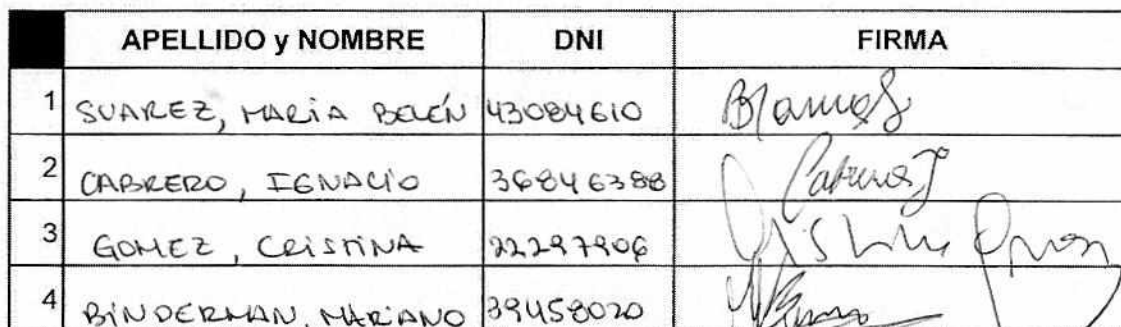 APELLIDO y NOMBRE DNI FIRMA
1 SUAREZ, MARÍA BELÉN 43084610
2 CABRERO, IGNACIO 36846388
3 GOMEZ, CRISTINA 22297906
4 BINDERMAN, MARIANO 39458020